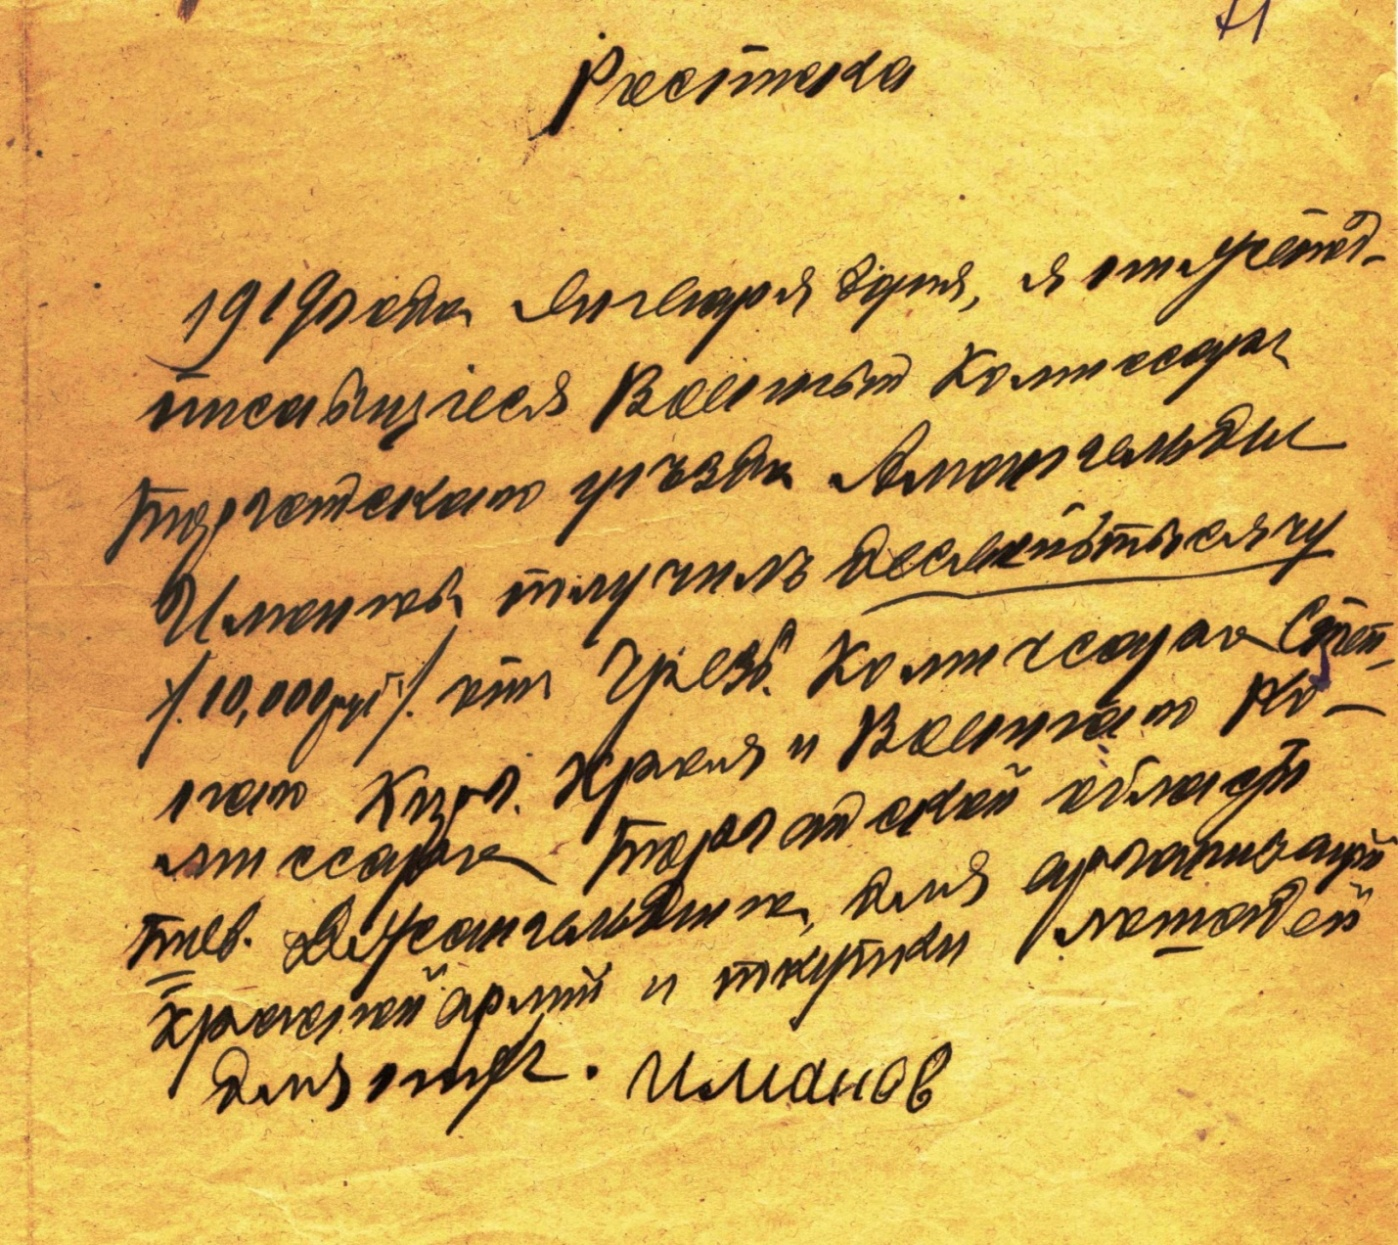 71
Росписка
1919 года Января дня, я ниже под-
писавшiеся Военный Комиссар
Тургайскаго уезда Амангельды
Иманов получилъ десять тысячу
/10,000 руб/ от Чрезв. Комиссара Степ-
наго Кирг. Края и Военнаго Ко-
миссара Тургайской области
тов. Джангильдина, для организацiй
Красной армiй и покупки лошадей
для них. Иманов